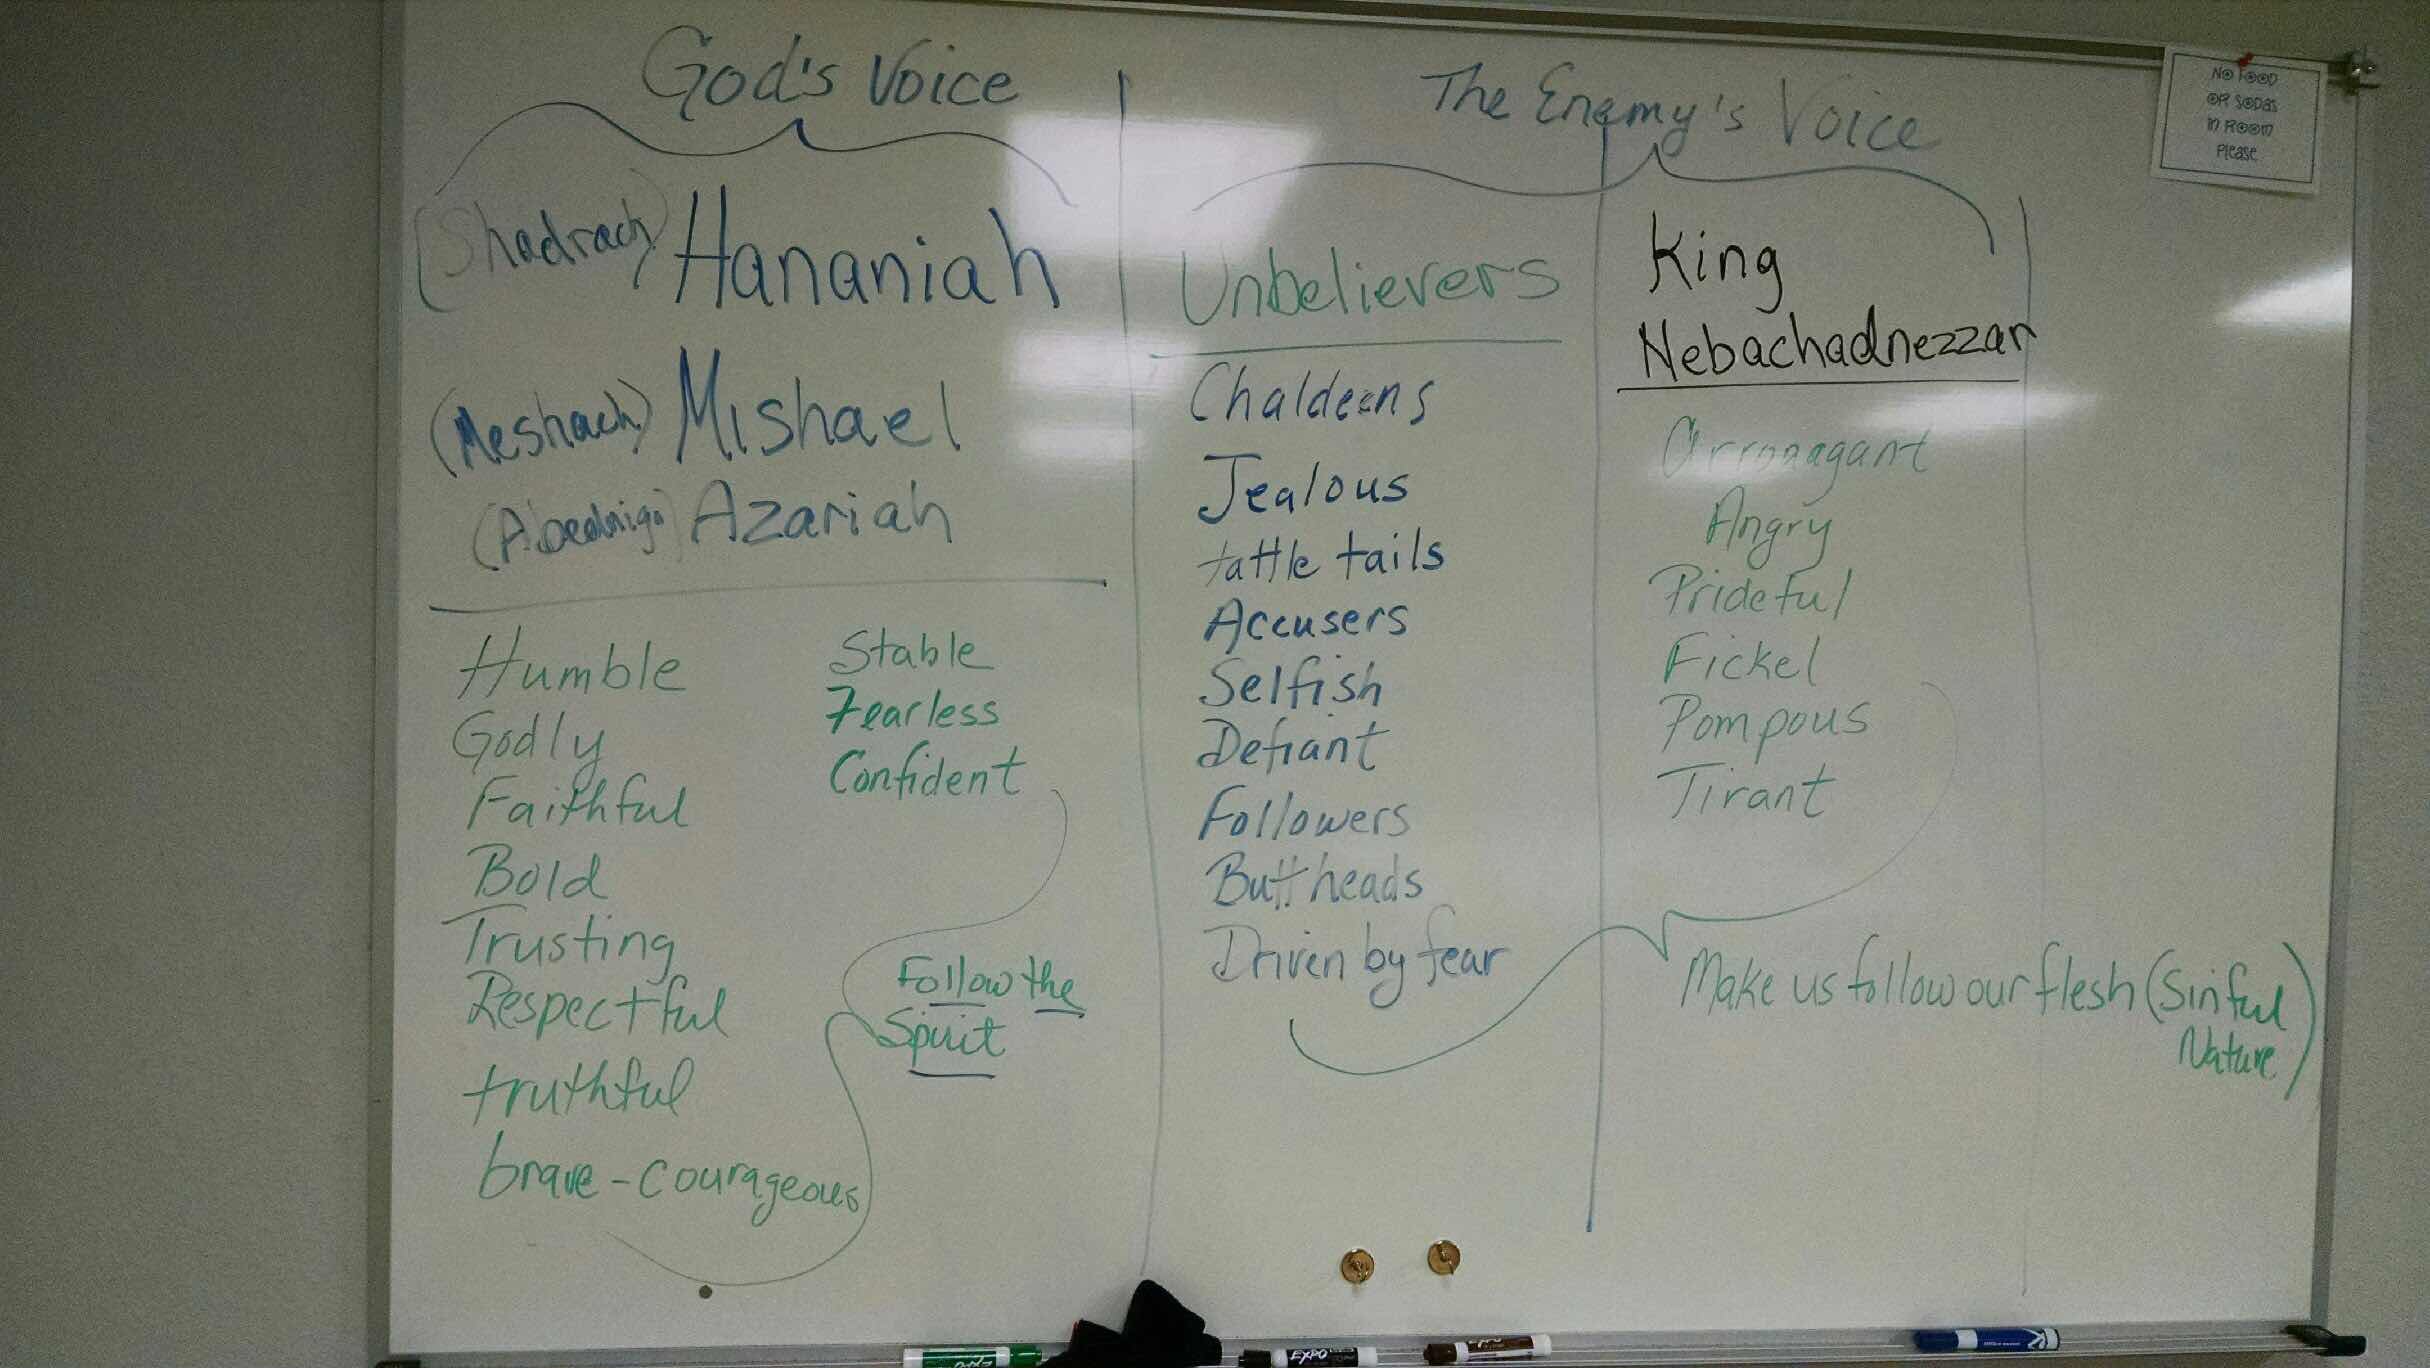 God's Voice
(Shadrach) Hananiah
(Meshach) Mishael
(Abednigo) Azariah
Humble
Godly
Faithful
Bold
Trusting
Respectful
truthful
brave - courageous
Stable
Fearless
Confident
Follow the
Spirit
The Enemy's Voice
Unbelievers
Chaldeans
Jealous
tattle tails
Accusers
Selfish
Defiant
Followers
Butt heads
Driven by fear
King
Nebachadnezzar
Arronagant
Angry
Prideful
Fickel
Pompous
Tirant
Make us follow our flesh (Sinful
Nature)
NO FOOD
OR SODAS
IN ROOM
PLEASE
EXPO